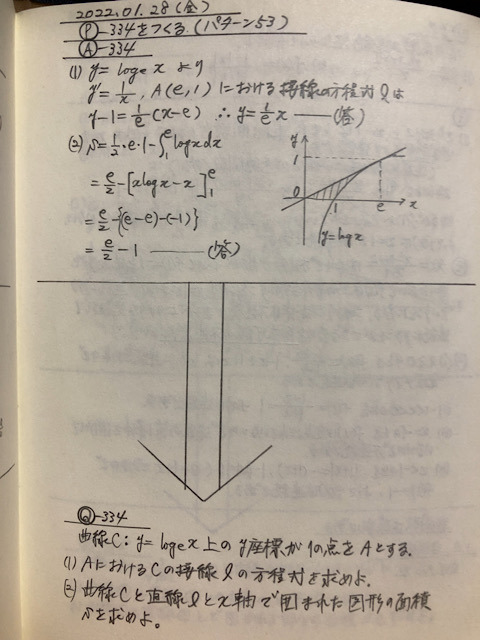 2022.01.28(金)
Ⓟ-334をつくる。(パターン53)
Ⓐ-334
(1) y=logex より
y'=1/x, A(e,1)における接線の方程式lは
y-1=1/e(x-e) ∴y=1/e x ――(答)
(2) S=1/2・e・1-∫₁ᵉlogxdx
=e/2-[xlogx-x]₁ᵉ
=e/2-{(e-e)-(-1)}
=e/2-1 ――(答)
y
1
0
1
e
x
y=logx
Ⓠ-334
曲線C:y=logex上のy座標が1の点をAとする。
(1) AにおけるCの接線lの方程式を求めよ。
(2) 曲線Cと直線lとx軸で囲まれた図形の面積
Sを求めよ。